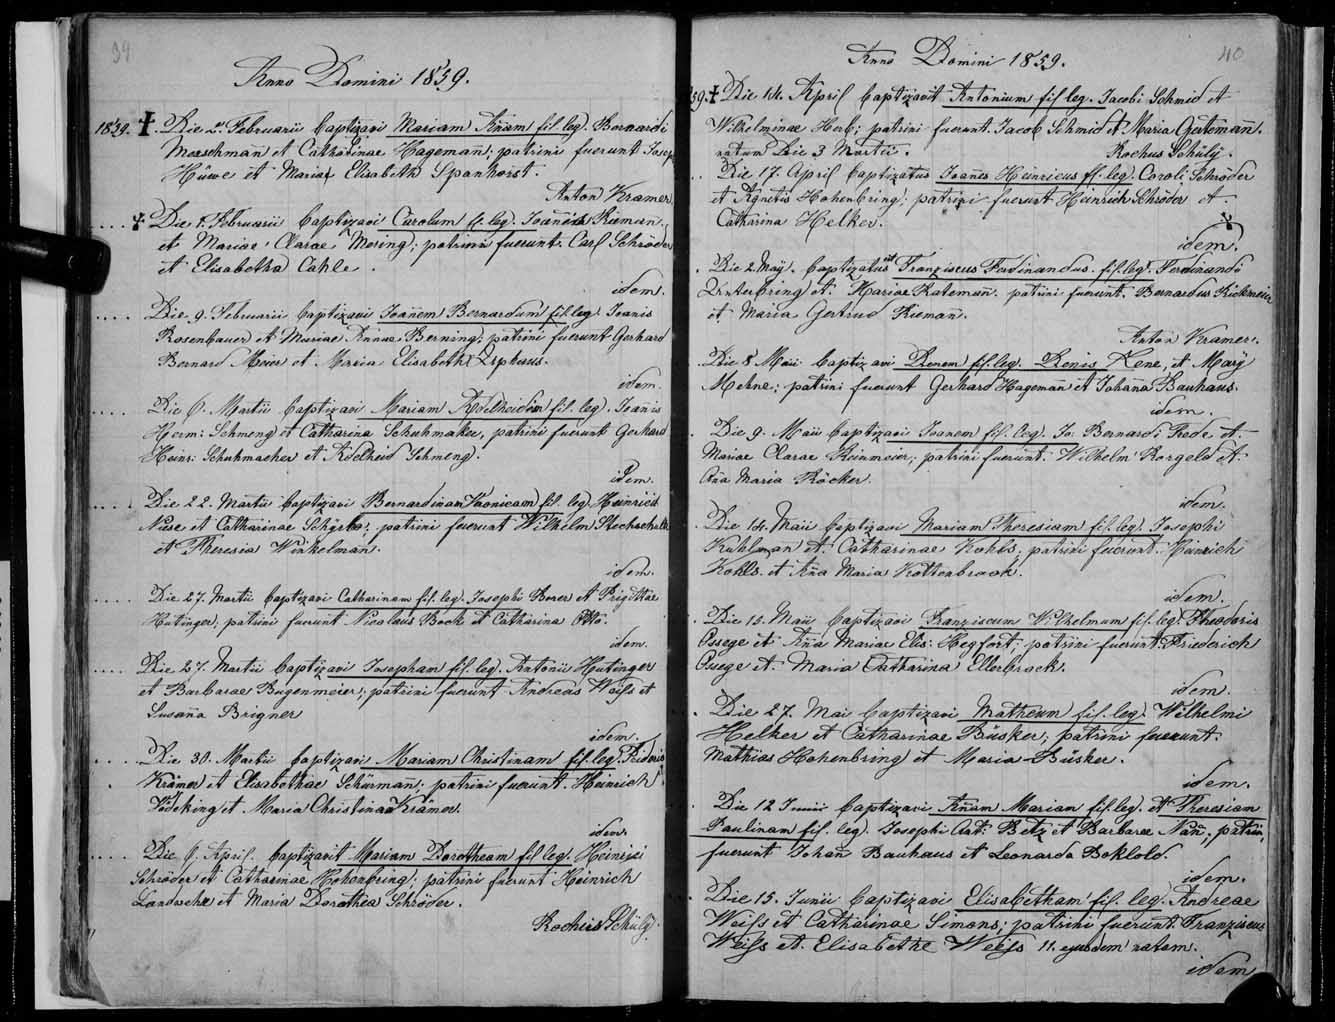 39
Anno Domini 1859.
1859. † Die 2. Februarii baptizavi Mariam Annam fil. leg. Bernardi
Morschmañ et Catharinae Hageman; patrini fuerunt Josep
Hüwe et Maria Elisabeth Spanhorst.
Anton Kramer
.... † Die 1. Februarii baptizavi Carolum f. leg. Joannis Rieman
et Mariae Clarae Moring; patrini fuerunt Carl Schröder
et Elisabetha Cahle.
idem.
.... Die 9. Februarii baptizavi Joanem Bernardum fil. leg. Joanis
Rosenbauer et Mariae Annae Berning; patrini fuerunt Gerhard
Bernard Meier et Maria Elisabeth Lipheus.
idem.
.... Die 6. Martii baptizavi Mariam Adelheidem fil. leg. Joañis
Herm: Schmeng et Catharina Schuhmaker, patrini fuerunt Gerhard
Heinr: Schuhmacher et Adelheid Schmeng.
idem.
.... Die 22. Martii baptizavi Bernardinam Veronicam fil. leg. Heinrich
Nise et Catharinae; patrini fuerunt Wilhelm
et Theresia Winkelmañ.
idem.
.... Die 27. Martii baptizavi Catharinam fil. leg. Josephi Borer et Brigittae
Hutinger; patrini fuerunt Nicolaus Bock et Catharina Otto.
idem.
.... Die 27. Martii baptizavi Josepham fil. leg. Antonii Hutinger
et Barbarae Bugenmeier; patrini fuerunt Andreas Weiss et
Susaña Brigner
idem.
.... Die 30. Martii baptizavi Mariam Christinam fil. leg. Frideric
Krämer et Elisabethae Schürmañ; patrini fuerunt Heinrich
Födeking et Maria Christina Krämer.
idem.
.... Die 6. April. baptizavit Mariam Dorotheam fil. leg. Heinrici
Schröder et Catharinae Hohenbring; patrini fuerunt Heinrich
Landwehr et Maria Dorothea Schröder.
Rochus Schüly.
40
Anno Domini 1859.
59. † Die 14. April baptizavit Antonium fil. leg. Jacobi Schmid et
Wilhelminae Herb; patrini fuerunt Jacob Schmid et Maria Gertemañ.
natum Die 3 Martii. Rochus Schüly.
.. Die 17. April baptizatus Joañes Heinricus fil. leg. Caroli Schröder
et Agnetis Hohenbring; patrini fuerunt Heinrich Schröder et
Catharina Helker.
idem.
. Die 2. Maÿ. baptizatus est Franziscus Ferdinandus. fil. leg. Ferdinandi
Unterbring et Mariae Katemañ. patrini fuerunt. Bernardus Rickmeier
et Maria Gertrud Rieman.
Anton Kramer.
. Die 8 Maii baptizavi Renem fil. leg. Renis Rene, et Marÿ
Mehne; patrini fuerunt Gerhard Hageman et Johaña Bauhaus.
idem.
. Die 9. Maii baptizavi Joanem fil. leg. Jo. Bernardi Frede et
Mariae Clarae Reinmeier; patrini fuerunt. Wilhelm Borgeld et
Aña Maria Röcker.
idem.
. Die 14. Maii baptizavi Mariam Theresiam fil. leg. Josephi
Kuhlman et Catharinae Kohls; patrini fuerunt. Heinrich
Kohls. et Aña Maria Kottenbrook.
idem.
. Die 15. Maii baptizavi Franziscum Wilhelmum fil. leg. Theodoris
Ossege et Aña Mariae Elis: Hegfort; patrini fuerunt. Friederich
Ossege et Maria Catharina Ellerbrock.
idem.
. Die 27. Mai baptizavi Matheum fil. leg. Wilhelmi
Helker et Catharinae Büsker; patrini fuerunt.
Mathias Hohenbring et Maria Büsker.
idem.
. Die 12 Junii baptizavi Añam Mariam fil. leg. et Theresiam
Paulinam fil. leg. Josephi Ant: Betz et Barbarae Nañ; patrini
fuerunt Johañ Bauhaus et Leonarda Boklold.
idem.
. Die 15. Junii baptizavi Elisabetham fil. leg. Andreae
Weiss et Catharinae Simons; patrini fuerunt. Franziscus
Weiss et Elisabethe Weiss 11. ejusdem natam.
idem